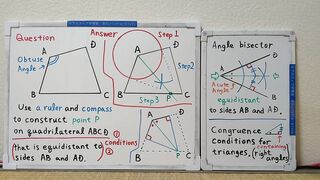 Question
Answer
Step 1
A
D
Obtuse
Angle
B
C
A
D
Step2
B
Step3
P
C
Use a ruler and compass
to construct point P
on quadrilateral ABCD
(that is equidistant to
sides AB and AD.)
① conditions
②
A
D
B
P
C
Angle bisector
A
B
D
Acute
Angle
equidistant
to sides AB and AD.
Congruence
conditions for
trianges, (containing
right
angles)